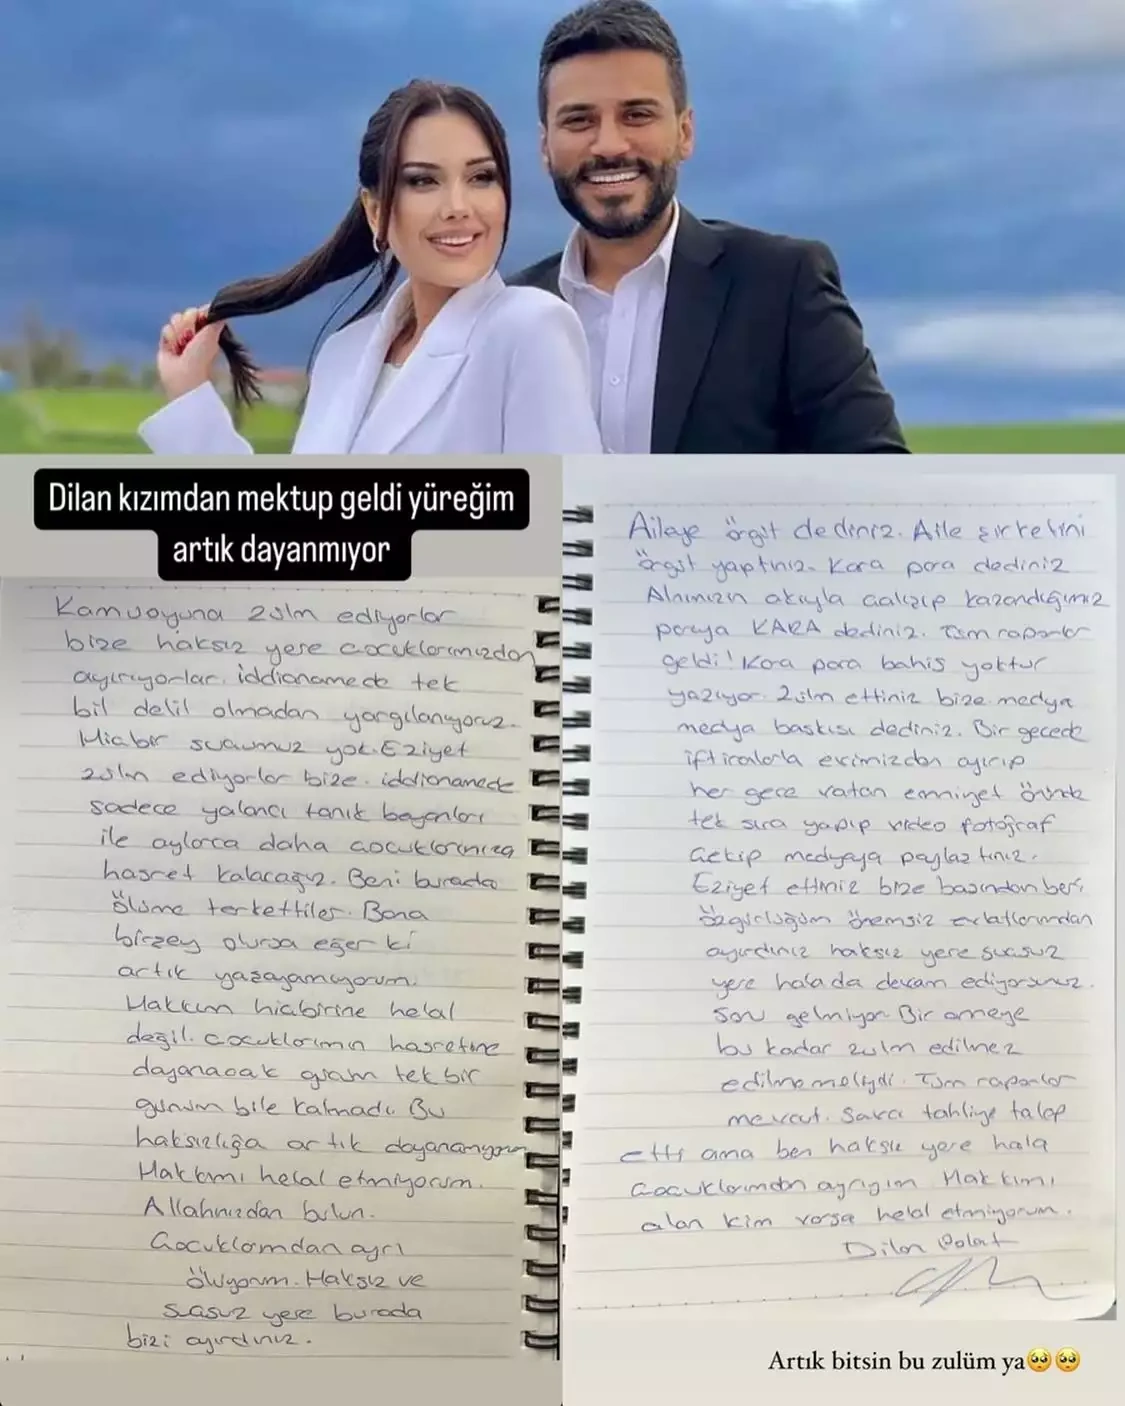 Dilan kızımdan mektup geldi yüreğim
artık dayanmıyor
Kamuoyuna zulm ediyorlar
bize haksız yere çocuklarımızdan
ayırıyorlar. iddianamede tek
bil delil olmadan yargılanıyoruz.
Hiçbir suçumuz yok. Eziyet
zulm ediyorlar bize. iddianamede
sadece yalancı tanık beyanları
ile aylarca daha çocuklarımıza
hasret kalacağız. Beni burada
ölüme terkettiler. Bana
birşey olursa eğer ki
artık yaşayamıyorum.
Hakkım hiçbirine helal
değil. Çocuklarımın hasretine
dayanacak gram tek bir
günüm bile kalmadı. Bu
haksızlığa artık dayanamıyorum
Hakkımı helal etmiyorum.
Allahınızdan bulun.
Çocuklarımdan ayrı
ölüyorum. Haksız ve
suçsuz yere burada
bizi ayırdınız.
Aileye örgüt dediniz. Aile şirketini
örgüt yaptınız. Kara para dediniz
Alnımızın akıyla çalışıp kazandığımız
paraya KARA dediniz. Tüm raporlar
geldi! Kara para bahis yoktur
yazıyor. Zulm ettiniz bize medya
medya baskısı dediniz. Bir gecede
iftiralarla evimizden ayırıp
her gece vatan emniyet önünde
tek sıra yapıp video fotoğraf
çekip medyaya paylaştınız.
Eziyet ettiniz bize başından beri
özgürlüğüm önemsiz evlatlarımdan
ayırdınız haksız yere suçsuz
yere hala da devam ediyorsunuz.
Sonu gelmiyor. Bir anneye
bu kadar zulm edilmez
edilmemeliydi. Tüm raporlar
mevcut. Savcı tahliye talep
etti ama ben haksız yere hala
çocuklarımdan ayrıyım. Hakkımı
alan kim varsa helal etmiyorum.
Dilan Polat
Artık bitsin bu zulüm ya🥺🥺